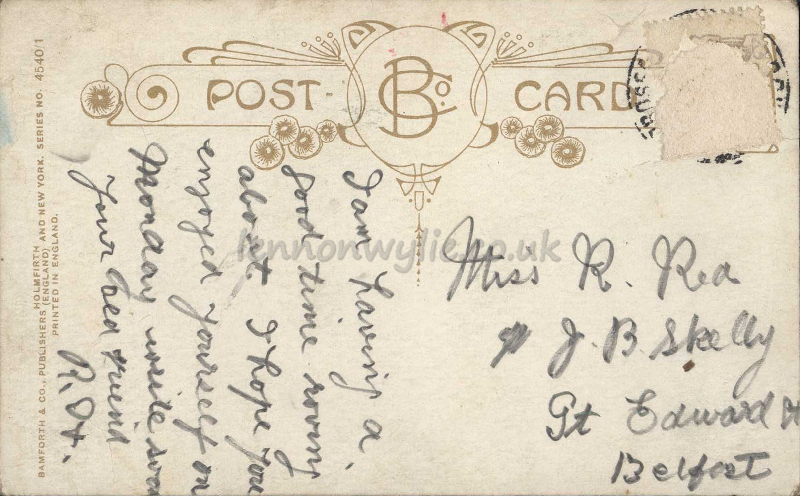 POST CARD
B Co.
I am having a
good time roving
about I hope you
enjoyed yourself on
Monday write soon
Your
R. H.
Miss R. Rea
J. B. Skelly
Gt Edward
Belfast
BAMFORTH & CO., PUBLISHERS HOLMFIRTH (ENGLAND) AND NEW YORK. SERIES NO. 4540/1
PRINTED IN ENGLAND.
lennonwylie.co.uk